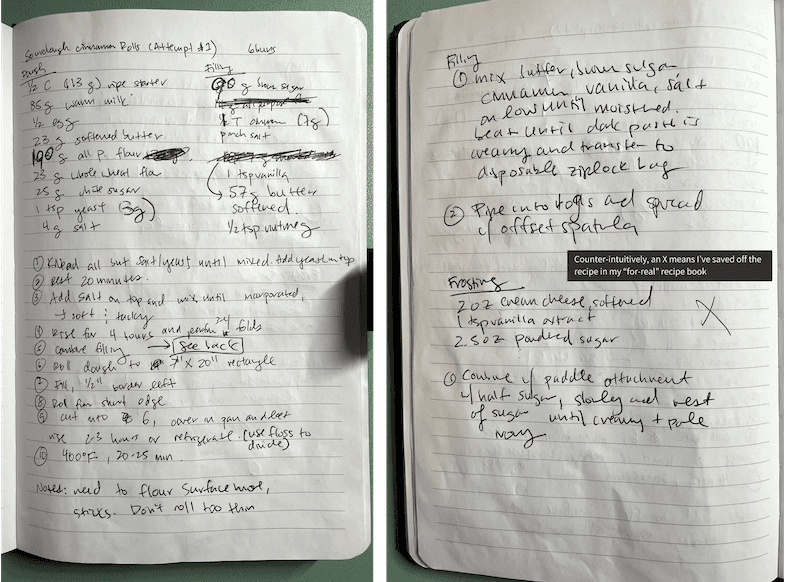 Sourdough Cinnamon Rolls (Attempt #1) 6 buns
Dough
1/2 C (113 g) ripe starter
85g warm milk
1/2 egg
23 g softened butter
190 g all p. flour
23 g whole wheat flour
25 g white sugar
1 tsp yeast (3g)
4 g salt
Filling
g brown sugar
T cinnamon (7g)
pinch salt
1 tsp vanilla
57g butter
softened.
1/2 tsp nutmeg
① Knead all but salt/yeast until mixed. Add yeast on top
② Rest 20 minutes.
③ Add salt on top and mix until incorporated,
→ soft & tacky
④ Rise for 4 hours and perform 2-4 folds
⑤ Combine filling → see back
⑥ Roll dough to 7" x 20" rectangle
⑦ Fill, 1/2" border left
⑧ Roll from short edge
⑨ Cut into 6, cover in pan and let
rise 2-3 hours or refrigerate. (use floss to
divide)
⑩ 400°F, 20-25 min.
Notes: need to flour surface more,
sticks. Don't roll too thin
Filling
① mix butter, brown sugar
cinnamon vanilla, salt
on low until moistened.
beat until dark paste is
creamy and transfer to
disposable ziplock bag
② Pipe into logs and spread
w/ offset spatula
Counter-intuitively, an X means I've saved off the
recipe in my "for-real" recipe book
Frosting
2 oz cream cheese, softened
1 tsp vanilla extract
2.5 oz powdered sugar
X
① Combine w/ paddle attachment
w/ half sugar, slowly add rest
of sugar until creamy + pale